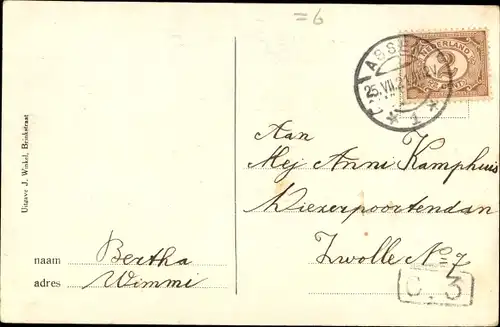 =6
ASSEN
25.VII.21
1
NEDERLAND
2
CENT
Aan
Mej Anni Kamphuis
Diezerpoortendan
Zwolle No 7
C 3
Uitgave J. Winkel, Brinkstraat
naam Bertha
adres Wimmi